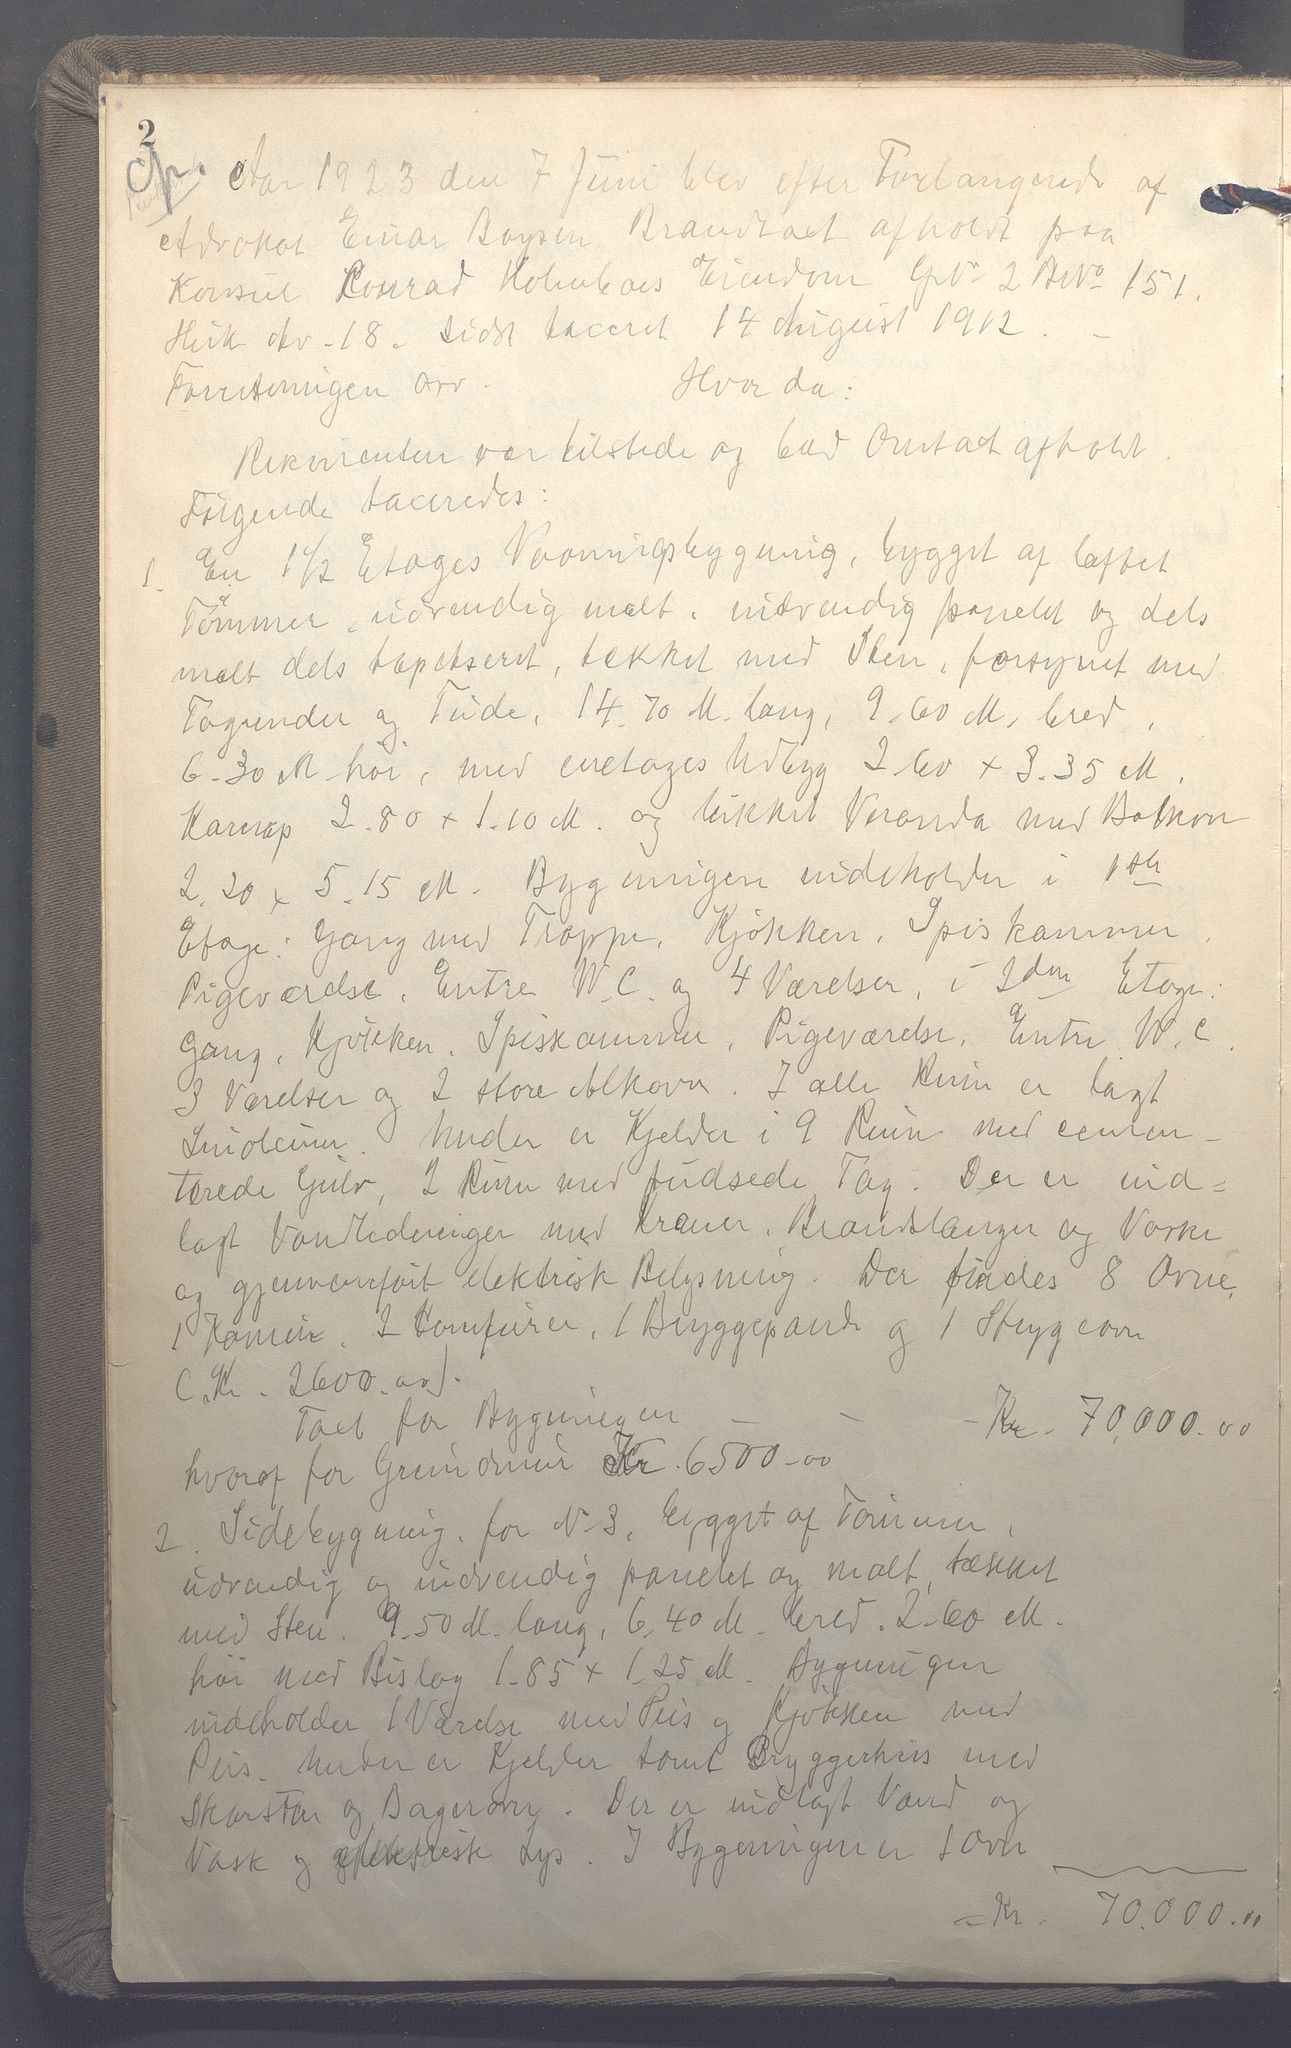 2
Cfr.
Aar 1923 den 7 Juni blev efter Forlangende af
Advokat Einar Boysen Brandtaxt afholdt paa
Konsul Konrad Holmboes Eiendom GNo 2 BNo 151.
No - 18. sidst taxeret 14 August 1912. -
Forretningen adv. Hvor da:
Rekvirenten var tilstede og bad Omtaxt afholdt.
Følgende taxeredes:
1. En 1 1/2 Etages Vaaningsbygning, bygget af laftet
Tømmer, udvendig malt, indvendig panelet og dels
malt dels tapetseret, tækket med Sten, forsynet med
Tagrender og Tude, 14.70 M. lang, 9.60 M. bred,
6.30 M høi, med enetages Udbyg 2.60 x 3.35 M.
Karnap 2.80 x 1.10 M. og lukket Veranda med Balkon
2.20 x 5.15 M. Bygningen indeholder i 1ste
Etage: Gang med Trappe, Kjøkken, Spiskammer,
Pigeværelse, Entre W.C. og 4 Værelser, i 2den Etage:
Gang, Kjøkken, Spiskammer, Pigeværelse, Entre W.C.
3 Værelser og 2 store Alkover. I alle Rum er lagt
Linoleum. Under er Kjelder i 9 Rum med cemen-
terede Gulv, 2 Rum med pudsede Tag. Der er ind=
lagt Vandledninger med Kraner, Brandslanger og Vaske
og gjennemført elektrisk Belysning. Der findes 8 Ovne,
1 Kamin, 2 Komfurer, 1 Bryggepande og 1 Strygeovn
(Kr. 2600.00).
Taxt for Bygningen - - - Kr. 70,000.00
hvoraf for Grundmur Kr. 6500.00
2. Sidebygning, før No 3, bygget af Tømmer,
udvendig og indvendig panelet og malt, tækket
med Sten. 9.50 M. lang, 6.40 M. bred. 2.60 M.
høi med Bislag 1.85 x 1.25 M. Bygningen
indeholder 1 Værelse med Peis og Kjøkken med
Peis. Under er Kjelder samt Bryggerhus med
Skorsten og Bagerovn. Der er indlagt Vand og
Vask og elektrisk Lys. I Bygningen er 1 Ovn
= Kr. 70,000.00